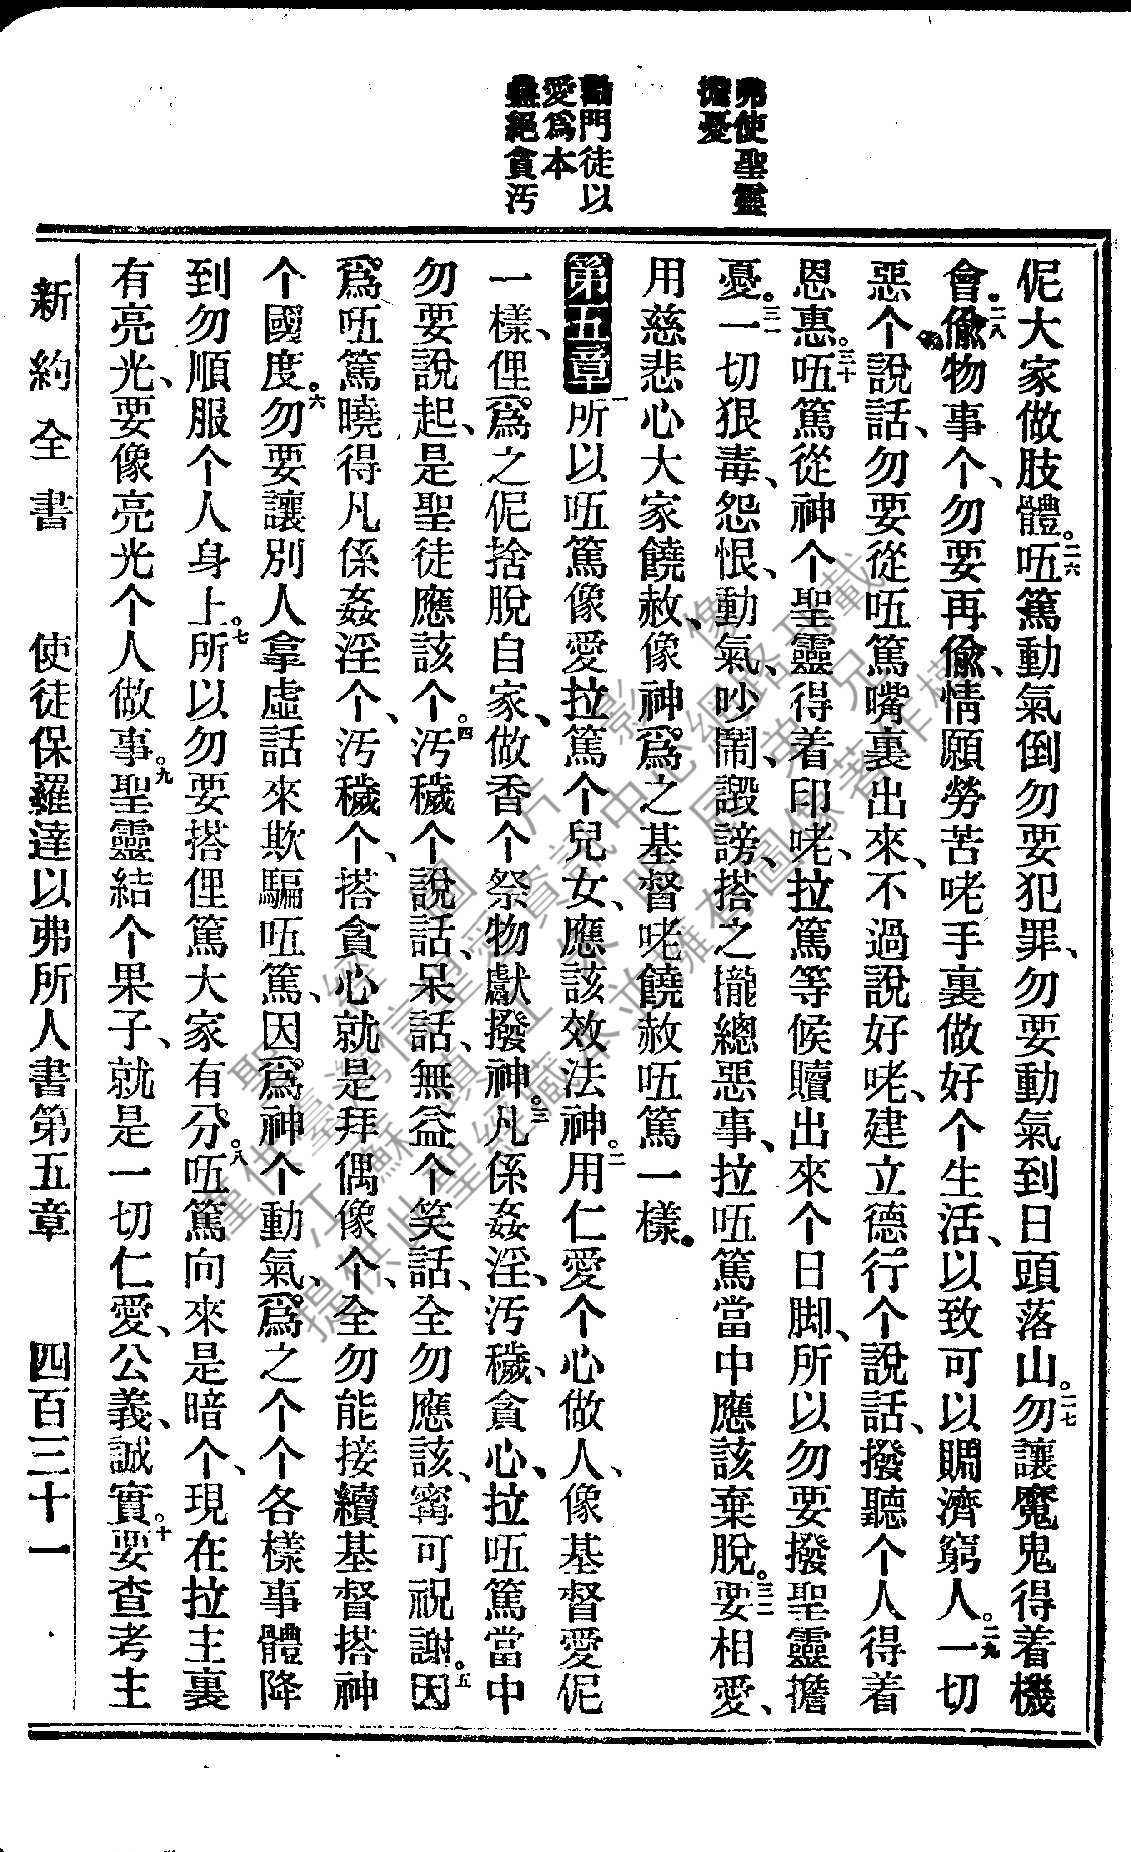 弗使聖靈
擔憂
勸門徒以
愛爲本
盡絕貪汚
伲大家做肢體。二六㑚篤動氣倒勿要犯罪、勿要動氣到日頭落山。二七勿讓魔鬼得着機
會。二八偸物事个、勿要再偸、情願勞苦咾手裏做好个生活、以致可以賙濟窮人。二九一切
惡个說話、勿要從㑚篤嘴裏出來、不過說好咾、建立德行个說話、撥聽个人得着
恩惠。三十㑚篤從神个聖靈得着印咾、拉篤等候贖出來个日脚、所以勿要撥聖靈擔
憂。三一一切狠毒、怨恨、動氣、吵鬧、毀謗、搭之攏總惡事、拉㑚篤當中應該棄脫。三二要相愛、
用慈悲心大家饒赦、像神爲之基督咾饒赦㑚篤一樣。
第五章 一所以㑚篤像愛拉篤个兒女、應該效法神。二用仁愛个心做人、像基督愛伲
一樣、俚爲之伲捨脫自家、做香个祭物獻撥神。三凡係姦淫、汚穢、貪心、拉㑚篤當中
勿要說起、是聖徒應該个。四汚穢个說話、呆話、無益个笑話、全勿應該、寗可祝謝。五因
爲㑚篤曉得凡係姦淫个、汚穢个、搭貪心就是拜偶像个、全勿能接續基督搭神
个國度。六勿要讓別人拿虛話來欺騙㑚篤、因爲神个動氣、爲之个个各樣事體降
到勿順服个人身上。七所以勿要搭俚篤大家有分。八㑚篤向來是暗个、現在拉主裏
有亮光、要像亮光个人做事。九聖靈結个果子、就是一切仁愛、公義、誠實。十要查考主
新約全書 使徒保羅達以弗所人書第五章 四百三十一